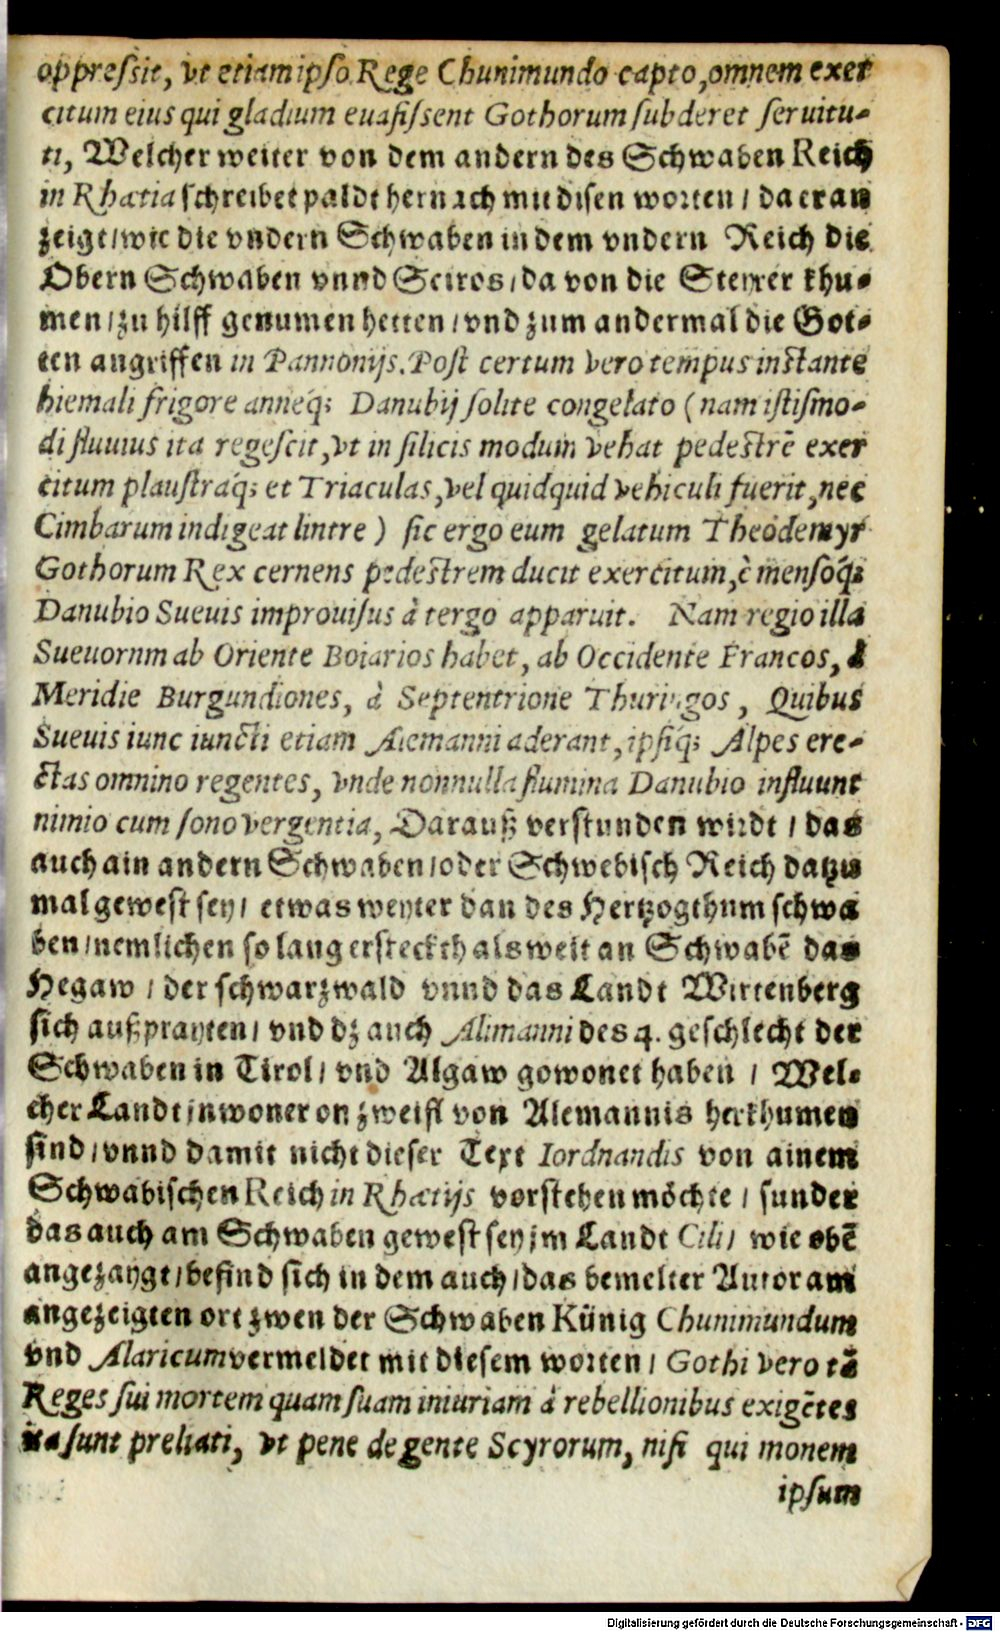 oppreſsit, vt etiam ipſo Rege Chunimundo capto, omnem exer
citum eius qui gladium euaſiſsent Gothorum ſubderet ſeruitu-
ti, Welcher weiter von dem andern des Schwaben Reich
in Rhætia ſchreibet paldt hernach mit diſen worten / da er an
zeigt / wie die vndern Schwaben in dem vndern Reich die
Obern Schwaben vnnd Sciros / da von die Steyrer khu-
men / zu hilff genumen hetten / vnd zum andermal die Got-
ten angriffen in Pannonijs. Poſt certum vero tempus inſtante
hiemali frigore anneq́; Danubij ſolite congelato (nam iſtiſmo-
di fluuius ita regeſcit, vt in ſilicis modum vehat pedeſtrē exer
citum plauſtraq́; et Triaculas, vel quidquid vehiculi fuerit, nec
Cimbarum indigeat lintre) ſic ergo eum gelatum Theodemyr
Gothorum Rex cernens pedeſtrem ducit exercitum, è menſoq́;
Danubio Sueuis improuiſus à tergo apparuit. Nam regio illa
Sueuornm ab Oriente Boiarios habet, ab Occidente Francos, à
Meridie Burgundiones, à Septentrione Thuringos, Quibus
Sueuis iunc iuncti etiam Alemanni aderant, ipſiq́; Alpes ere-
ctas omnino regentes, vnde nonnulla flumina Danubio influunt
nimio cum ſono vergentia, Darauß verſtunden wirdt / das
auch ain andern Schwaben / oder Schwebiſch Reich datzu
mal geweſt ſey / etwas weyter dan des Hertzogthum ſchwa
ben / nemlichen ſo lang erſteckth als weit an Schwabē das
Hegaw / der ſchwarzwald vnnd das Landt Wirtenberg
ſich außprayten / vnd dz auch Alimanni des 4. geſchlecht der
Schwaben in Tirol / vnd Algaw gowonet haben / Wel-
cher Landt inwoner on zweifl von Alemannis herkhumen
ſind / vnnd damit nicht dieſer Text Iordnandis von ainem
Schwabiſchen Reich in Rhætijs vorſtehen möchte / ſunder
das auch am Schwaben geweſt ſey im Landt Cili / wie obē
angezaygt / befind ſich in dem auch / das bemelter Autor am
angezeigten ort zwen der Schwaben Künig Chunimundum
vnd Alaricum vermeldet mit dieſem worten / Gothi vero tā
Reges ſui mortem quam ſuam iniuriam à rebellionibus exigētes
ita ſunt preliati, vt pene de gente Scyrorum, niſi qui monem
ipſum
Digitalisierung gefördert durch die Deutsche Forschungsgemeinschaft - DFG